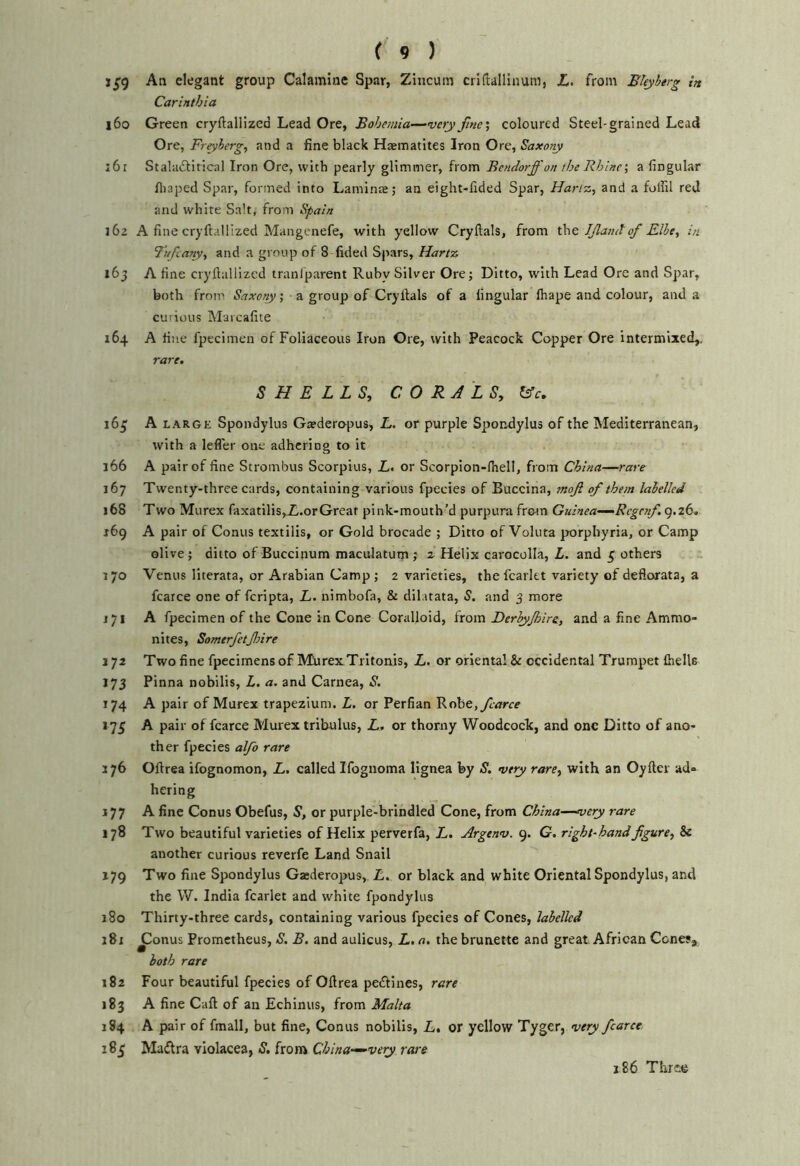 ( 9 )
159 An elegant group Calamine Spar, Zincum criſtallinum, L. from Bleyberg in
Carinthia
160 Green cryſtallized Lead Ore, Bohemia—very fine; coloured Steel-grained Lead
Ore, Freyberg, and a fine black Hæmatites Iron Ore, Saxony
161 Stalactitical Iron Ore, with pearly glimmer, from Bendorff on the Rhine; a ſingular
ſhaped Spar, formed into Laminæ; an eight-ſided Spar, Hartz, and a foſſil red
and white Salt, from Spain
162 A fine cryſtallized Mangeneſe, with yellow Cryſtals, from the Iſland of Elbe, in
Tuſcany, and a group of 8 ſided Spars, Hartz
163 A fine cryſtallized tranſparent Ruby Silver Ore; Ditto, with Lead Ore and Spar,
both from Saxony; a group of Cryſtals of a ſingular ſhape and colour, and a
curious Marcaſite
164 A fine ſpecimen of Foliaceous Iron Ore, with Peacock Copper Ore intermixed,
rare.
SHELLS, CORALS, &c.
165 A LARGE Spondylus Gæderopus, L. or purple Spondylus of the Mediterranean,
with a leſſer one adhering to it
166 A pair of fine Strombus Scorpius, L. or Scorpion-ſhell, from China—rare
167 Twenty-three cards, containing various ſpecies of Buccina, moſt of them labelled
168 Two Murex ſaxatilis, L. or Great pink-mouth'd purpura from Guinea—Regenſ. 9. 26.
169 A pair of Conus textilis, or Gold brocade; Ditto of Voluta porphyria, or Camp
olive; ditto of Buccinum maculatum; 2 Helix carocolla, L. and 5 others
170 Venus literata, or Arabian Camp; 2 varieties, the ſcarlet variety of deflorata, a
ſcarce one of ſcripta, L. nimboſa, & dilatata, S. and 3 more
171 A ſpecimen of the Cone in Cone Coralloid, from Derbyſhire, and a fine Ammo-
nites, Somerſetſhire
172 Two fine ſpecimens of Murex Tritonis, L. or oriental & occidental Trumpet ſhells
173 Pinna nobilis, L. a. and Carnea, S.
174 A pair of Murex trapezium. L. or Perſian Robe, ſcarce
175 A pair of ſcarce Murex tribulus, L. or thorny Woodcock, and one Ditto of ano-
ther ſpecies alſo rare
176 Oſtrea iſognomon, L. called Iſognoma lignea by S. very rare, with an Oyſter ad-
hering
177 A fine Conus Obeſus, S, or purple-brindled Cone, from China—very rare
178 Two beautiful varieties of Helix perverſa, L. Argenv. 9. G. right-hand figure, &
another curious reverſe Land Snail
179 Two fine Spondylus Gæderopus, L. or black and white Oriental Spondylus, and
the W. India ſcarlet and white ſpondylus
180 Thirty-three cards, containing various ſpecies of Cones, labelled
181 Conus Prometheus, S. B. and aulicus, L. a. the brunette and great African Cones,
both rare
182 Four beautiful ſpecies of Oſtrea pectines, rare
183 A fine Caſt of an Echinus, from Malta
184 A pair of ſmall, but fine, Conus nobilis, L. or yellow Tyger, very ſcarce
185 Mactra violacea, S. from China—very rare
186 Three